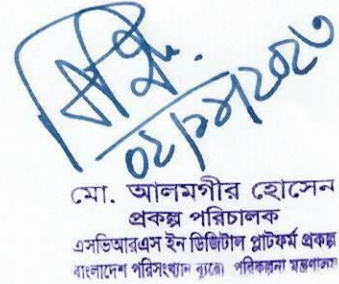 মো. আলমগীর হোসেন
প্রকল্প পরিচালক
এসভিআরএস ইন ডিজিটাল প্লাটফর্ম প্রকল্প
বাংলাদেশ পরিসংখ্যান ব্যুরো পরিকল্পনা মন্ত্রণালয়